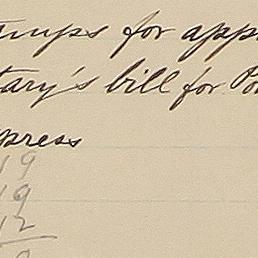 tamps for app
tary's bill for Po
press
19
19
12